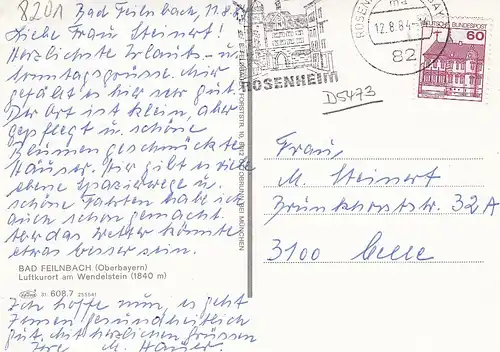 8201
Bad Feilnbach, 11.8.84
Liebe Frau Steinert!
Herzlichste Urlaubs- u.
Sonntagsgrüsse. Mir
gefällt es hier sehr gut.
Der Ort ist klein, aber
gepflegt u. schöne
Blumen geschmückte
Häuser. Hier gibt es viele
ebene Spazierwege u.
schöne Fahrten habe ich
auch schon gemacht.
Aber das Wetter könnte
etwas besser sein.
BAD FEILNBACH (Oberbayern)
Luftkurort am Wendelstein (1840 m)
31 608.7 255541
Ich hoffe nun, es geht
Ihnen gesundheitlich
gut. Mit herzlichen Grüssen
Ihre M. Hauser.
MÜNCHEN
ROSENHEIM
12.8.84
82
DEUTSCHE BUNDESPOST
60
D5473
Frau,
M. Steinert
32A
3100 Celle